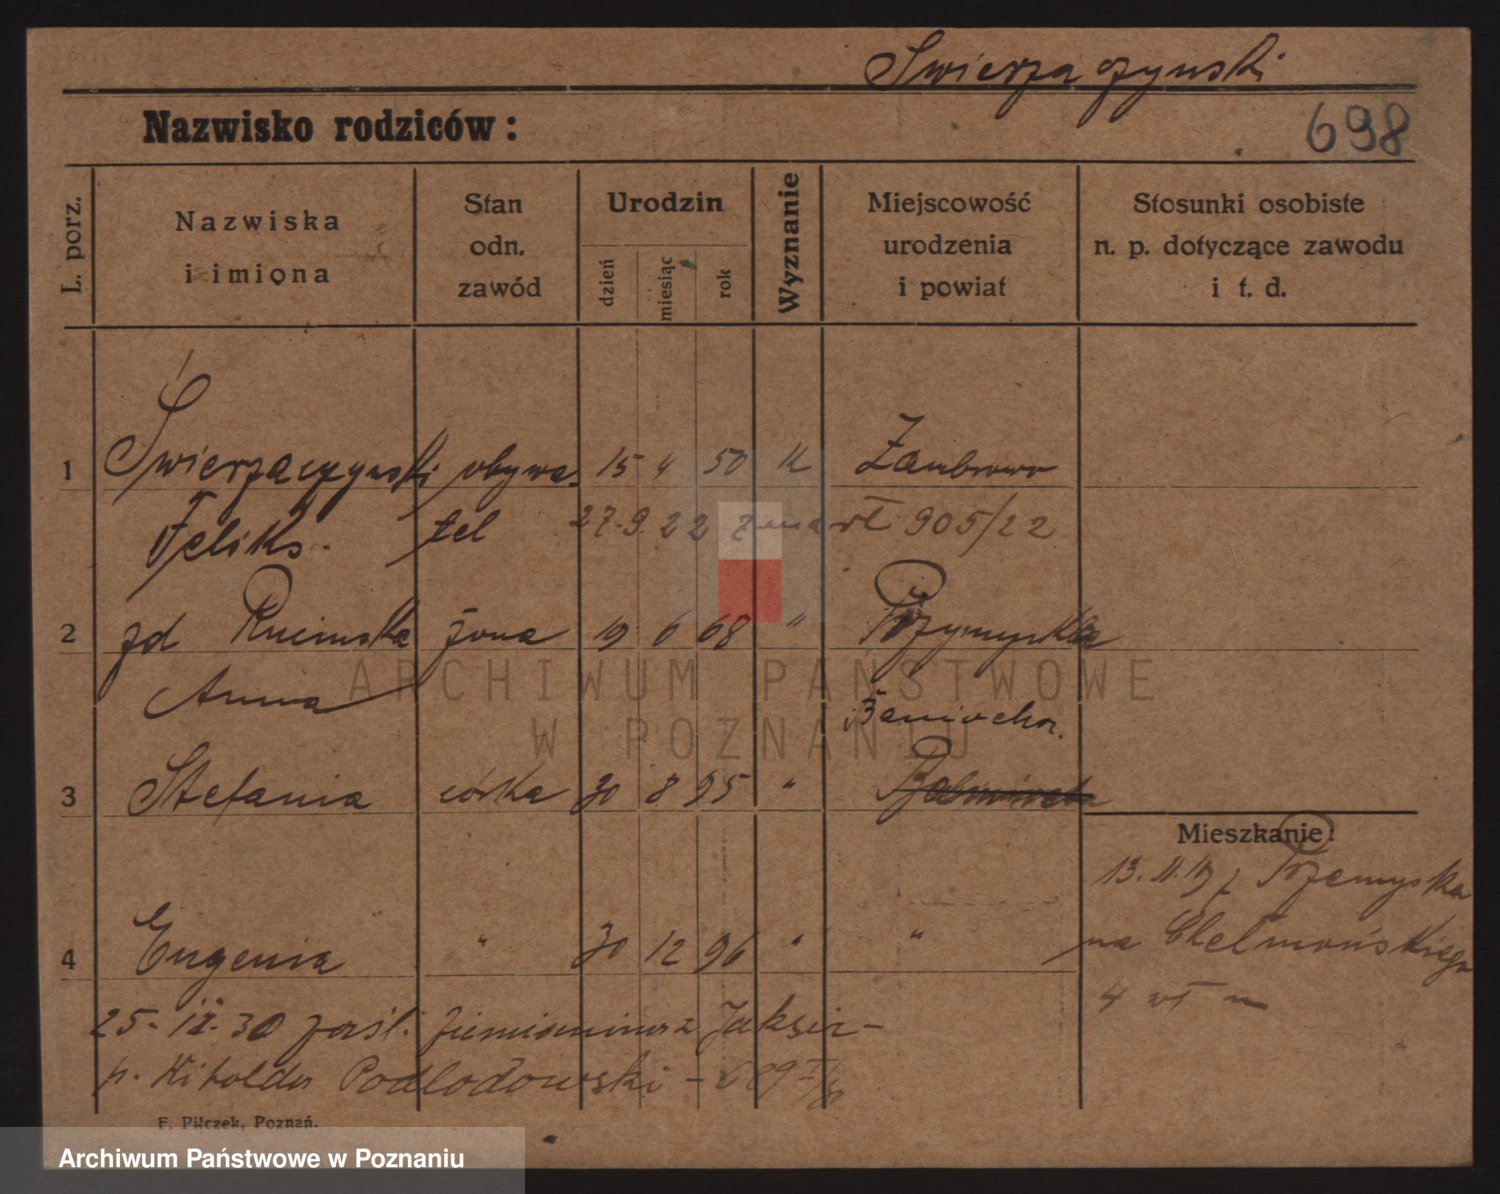 Swierzaczynski
Nazwisko rodziców:
698
L. porz.
Nazwiska
i imiona
Stan
odn.
zawód
Urodzin
dzień
miesiąc
rok
Wyznanie
Miejscowość
urodzenia
i powiat
Stosunki osobiste
n. p. dotyczące zawodu
i t. d.
1 Świerzaczynski obywa- 15 4 50 K Zambrowo
Feliks. tel 27.9.22 zmarł 905/22
2 zd żona 19 6 68 "
Anna
Baniocha.
3 Stefania córka 30 8 95 "
Mieszkanie:
13.11.19 z Przemyska
na Chełmońskiego
4 wł
4 Eugenia " 30 12 96 " "
25-IX-30 zaśl. ziemianinowi
p. Witolda Podlodowski - 689
F. Pilczek, Poznań.
ARCHIWUM PAŃSTWOWE
W POZNANIU
Archiwum Państwowe w Poznaniu